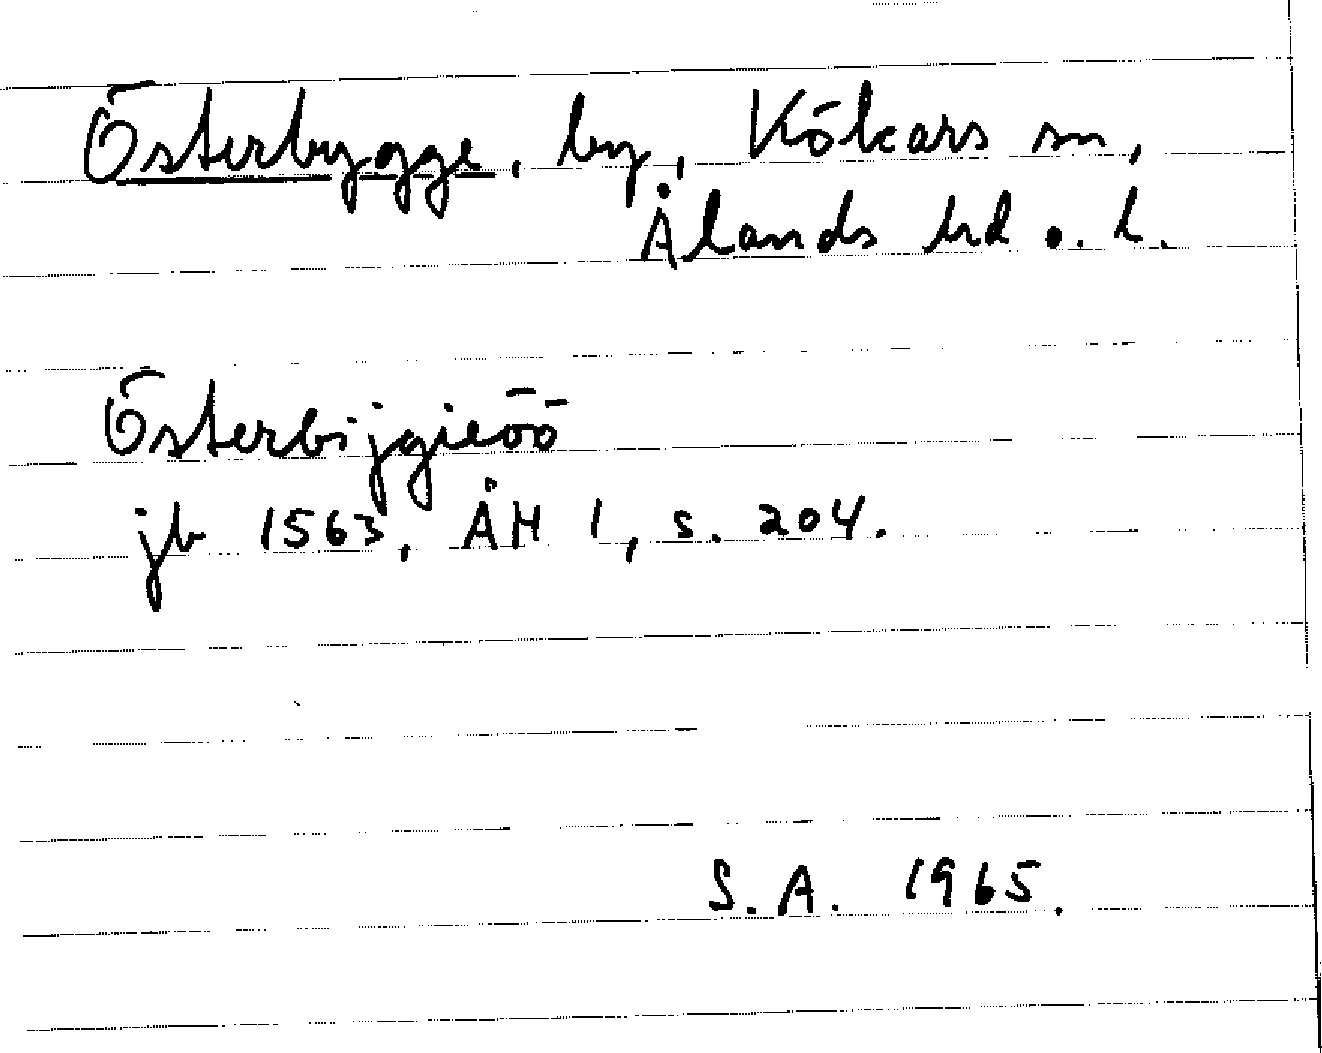 Österbygge, by, Kökars sn,
Ålands hd o. l.
Österbijgieöö
jb 1563, ÅH 1, s. 204.
S.A. 1965.